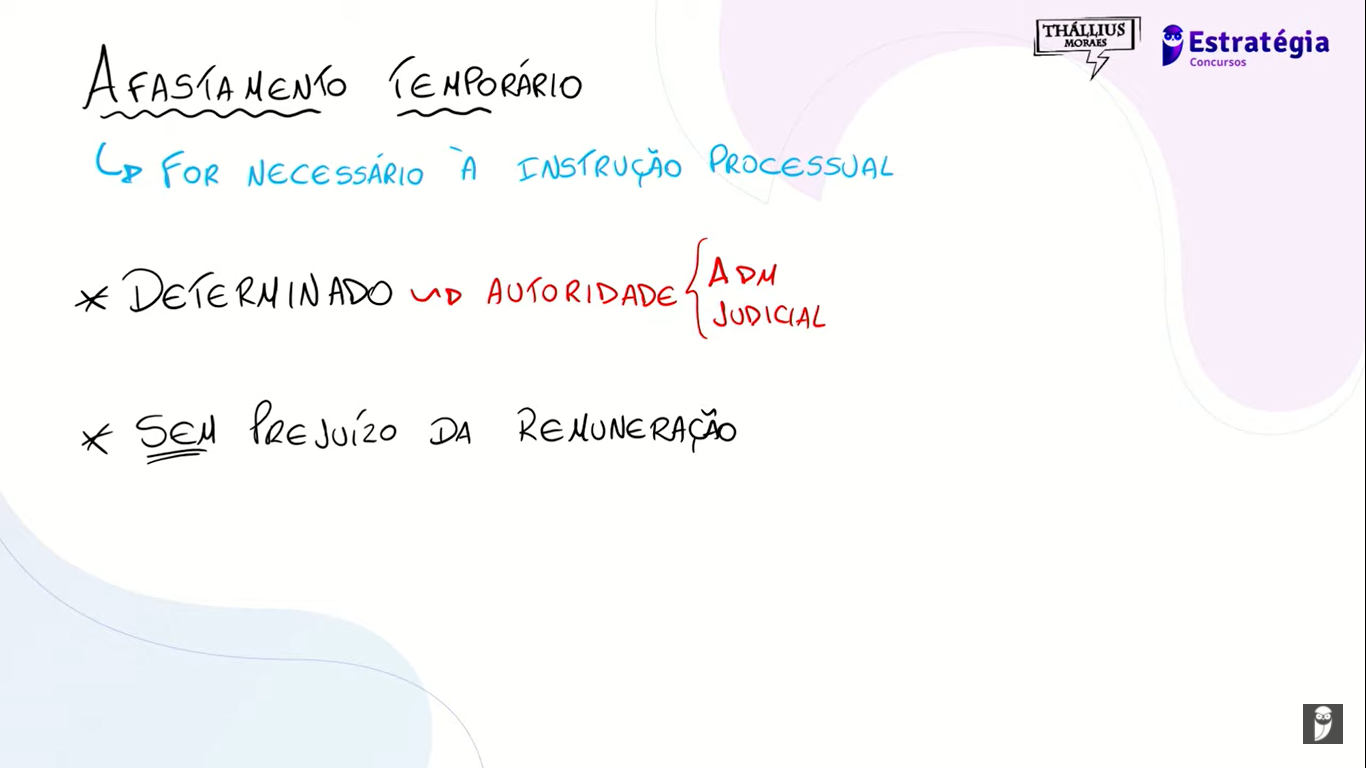 THÁLLIUS
MORAES
Estratégia
Concursos
AFASTAMENTO TEMPORÁRIO
FOR NECESSÁRIO À INSTRUÇÃO PROCESSUAL
* DETERMINADO AUTORIDADE { ADM
JUDICIAL
* SEM PREJUÍZO DA REMUNERAÇÃO